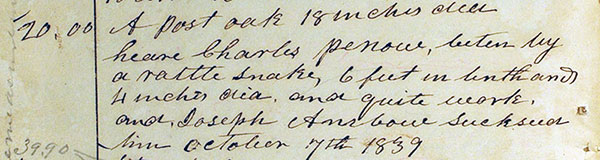 20.00 A Post oak 18 inches dia
heare Charles Penow, beten by
a rattle snake, 6 feet in linth and
4 inches dia. and quite work.
and Joseph Ansbow sucksed
39.90 him October 7th 1839